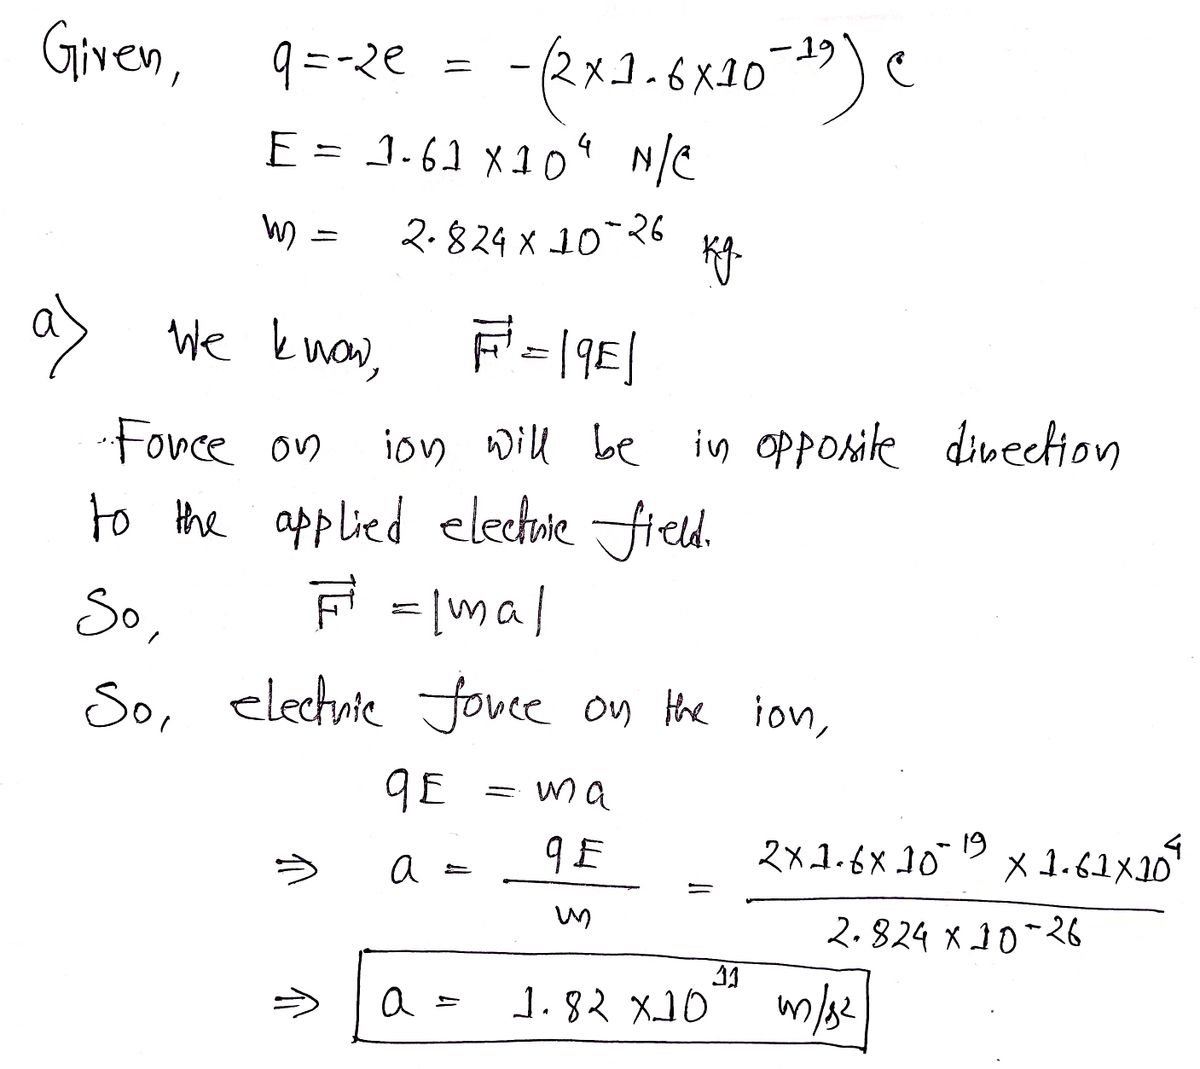 Given, q = -2e = -(2×1.6×10^-19) C
E = 1.61 × 10^4 N/C
m = 2.824 × 10^-26 kg.
a) We know, F⃗ = |qE|
Force on ion will be in opposite direction
to the applied electric field.
So, F⃗ = |ma|
So, electric force on the ion,
qE = ma
⇒ a = qE/m = (2×1.6×10^-19 × 1.61×10^4)/(2.824 × 10^-26)
⇒ a = 1.82 × 10^11 m/s²